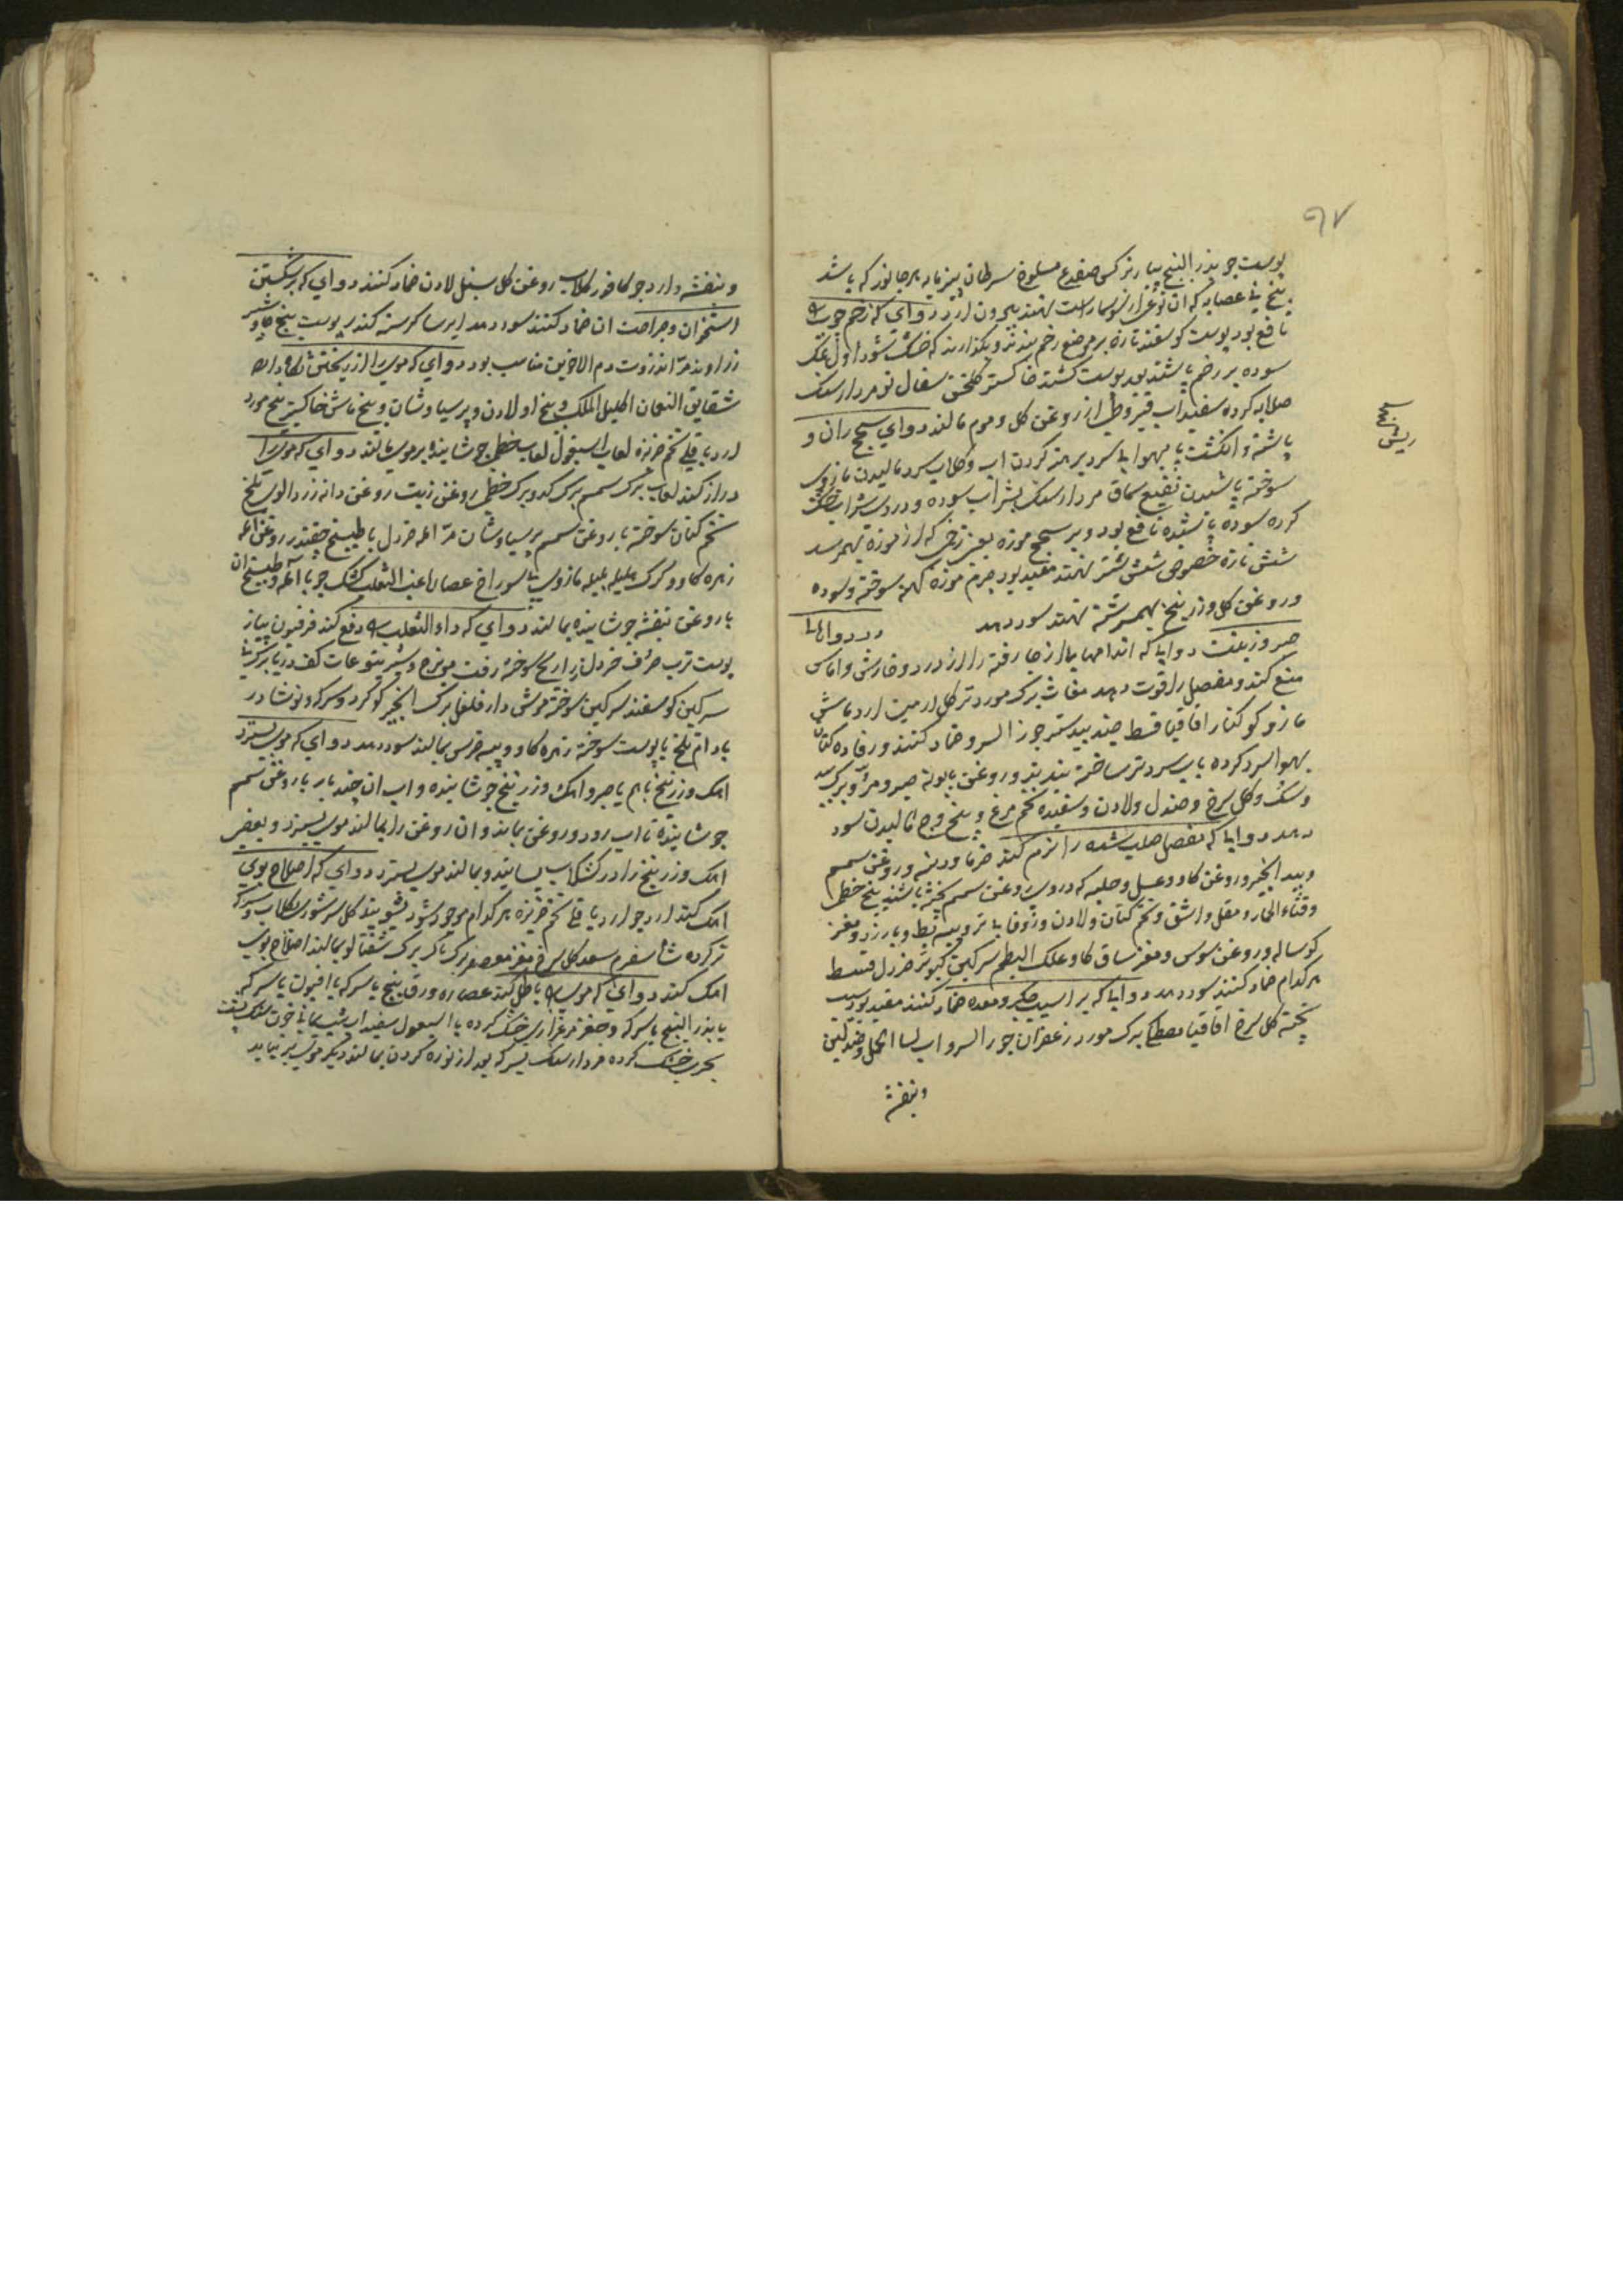 ۹۷
پوست جو بذر البنج پیاز نرکس ضفدع مسلوخ سرطان پنیر مایه هر جانور که باشد
بیخ نی عصابه که ان نوعی از سوسمار است نهند بیرون ارد دوای که زخم چوب را
نافع بود پوست کوسفند تازه بر موضع زخم بندند و بکذارند که خشک شود اول نمک
سوده بر زخم پاشند بعد پوست کشند خاکستر کلخن سفال نو مردارسنک
صلابه کرده سفیداب قیروطی از روغن کل و موم مالند دوای سحج ران و
پاشنه و انکشت پا بهوای سرد برهنه کردن اب و کلاب سرد مالیدن مازوی
سوخته پاشیدن نقیع سماق مردارسنک بشراب سوده و دردی شراب خشک
کرده سوده پاشیده نافع بود و بر سحج موزه یعنی زخمی که از موزه بهم رسد
شش تازه خصوص شش شتر نهند مفید بود چرم موزه کهنه سوخته و سوده
و روغن کل و زرنیخ بهم سرشته نهند سود دهد در دواهای
ریش
صبر و زفت دوایی که اندامها از جا رفته را از درد و خارش و اماس
منع کند و مفصل را قوت دهد مغاث برک مورد تر کل ارمنی ارد ماش
مازو کوکنار اقاقیا قسط جندبیدستر جوز السرو ضماد کنند و رفاده کتان
بهوا سرد کرده باب سرد تر ساخته بندند و روغن بابونه صبر و مر و برک بید
و سک و کل سرخ و صندل و لادن و سفیده تخم مرغ و بیخ وج مالیدن سود
دهد دوایا که مفصل صلب شده را نرم کند خرما و دنبه و روغن سمسم
و بید انجیر و روغن کاو و عسل و حلبه که در وی روغن سمسم پخته باشند بیخ خطمی
و قثاء الحمار و مقل و اشق و تخم کتان و لادن و زوفا تر و پیه بط و بارزد و مغز
کوساله و روغن سوسن و مغز ساق کاو و علک البطم سرکین کبوتر خردل قسط
هر کدام ضماد کنند سود دهد دوایا که بر اسیب جکر و معده ضماد کنند مفید بود سیب
پخته کل سرخ اقاقیا مصطکی برک مورد زعفران جوز السرو اب لسان الحمل و صندلین
و بنفشه
و بنفشه و ارد جو کافور کلاب روغن کل سنبل لادن ضماد کنند دوای که بر شکستن
استخوان و جراحت ان ضماد کنند سود دهد ایرسا کرسنه کندر پوست بیخ جاوشیر
زراوند مر انزروت دم الاخوین مناسب بود دوای که موی را از ریختن نکاه دارد
شقایق النعمان اکلیل الملک و بیخ او لادن و پرسیاوشان و بیخ ماش خاکستر بیخ مورد
ارد باقلی تخم خربزه لعاب اسبغول لعاب خطمی جوشانیده بر موی مالند دوای که موی را
دراز کند لعاب برک سمسم برک کدو برک خطمی روغن زیت روغن دانه زردالوی تلخ
تخم کتان سوخته با روغن سمسم پرسیاوشان مر امله خردل با طبیخ چقندر روغن امله
زهره کاو و کرک هلیله بلیله مازوی بی سوراخ عصاره عنب الثعلب کشک جو با امله و طبیخ ان
با روغن بنفشه جوشانیده بمالند دوای که داء الثعلب را دفع کند فرفیون پیاز
پوست ترب حرف خردل ذراریح سوخته زفت مویزج و شیر یتوعات کف دریا برک نی
سرکین کوسفند سرکین سوخته موش دارفلفل برک انجیر کوکرد و سرکه و نوشادر
بادام تلخ با پوست سوخته زهره کاو و پیه خرس بمالند سود دهد دوای که موی بسترد
اهک و زرنیخ باهم یا صبر و اهک و زرنیخ جوشانیده و اب ان چند بار با روغن سمسم
جوشانیده تا اب رود و روغن بماند و ان روغن را بمالند موی بسترد و بعضی
اهک و زرنیخ را در کشکاب بسایند و بمالند موی بسترد دوای که اصلاح بوی
اهک کند ارد جو ارد باقلی تخم خربزه هر کدام موجود شود بشویند کل سرشوی بکلاب و سرکه
تر کرده شاهسفرم سعد کل سرخ مغز معصفر برک تاک برک شفتالو بمالند اصلاح بوی
اهک کند دوای که موی را باطل کند عصاره ورق بنج با سرکه یا افیون با سرکه
یا بذر البنج با سرکه و ضفدع خشک کرده با اسبغول سفیداب شب یمانی خون سنک پشت
بحری خشک کرده مردارسنک بسرکه بعد از نوره کردن بمالند دیکر موی بر نیاید